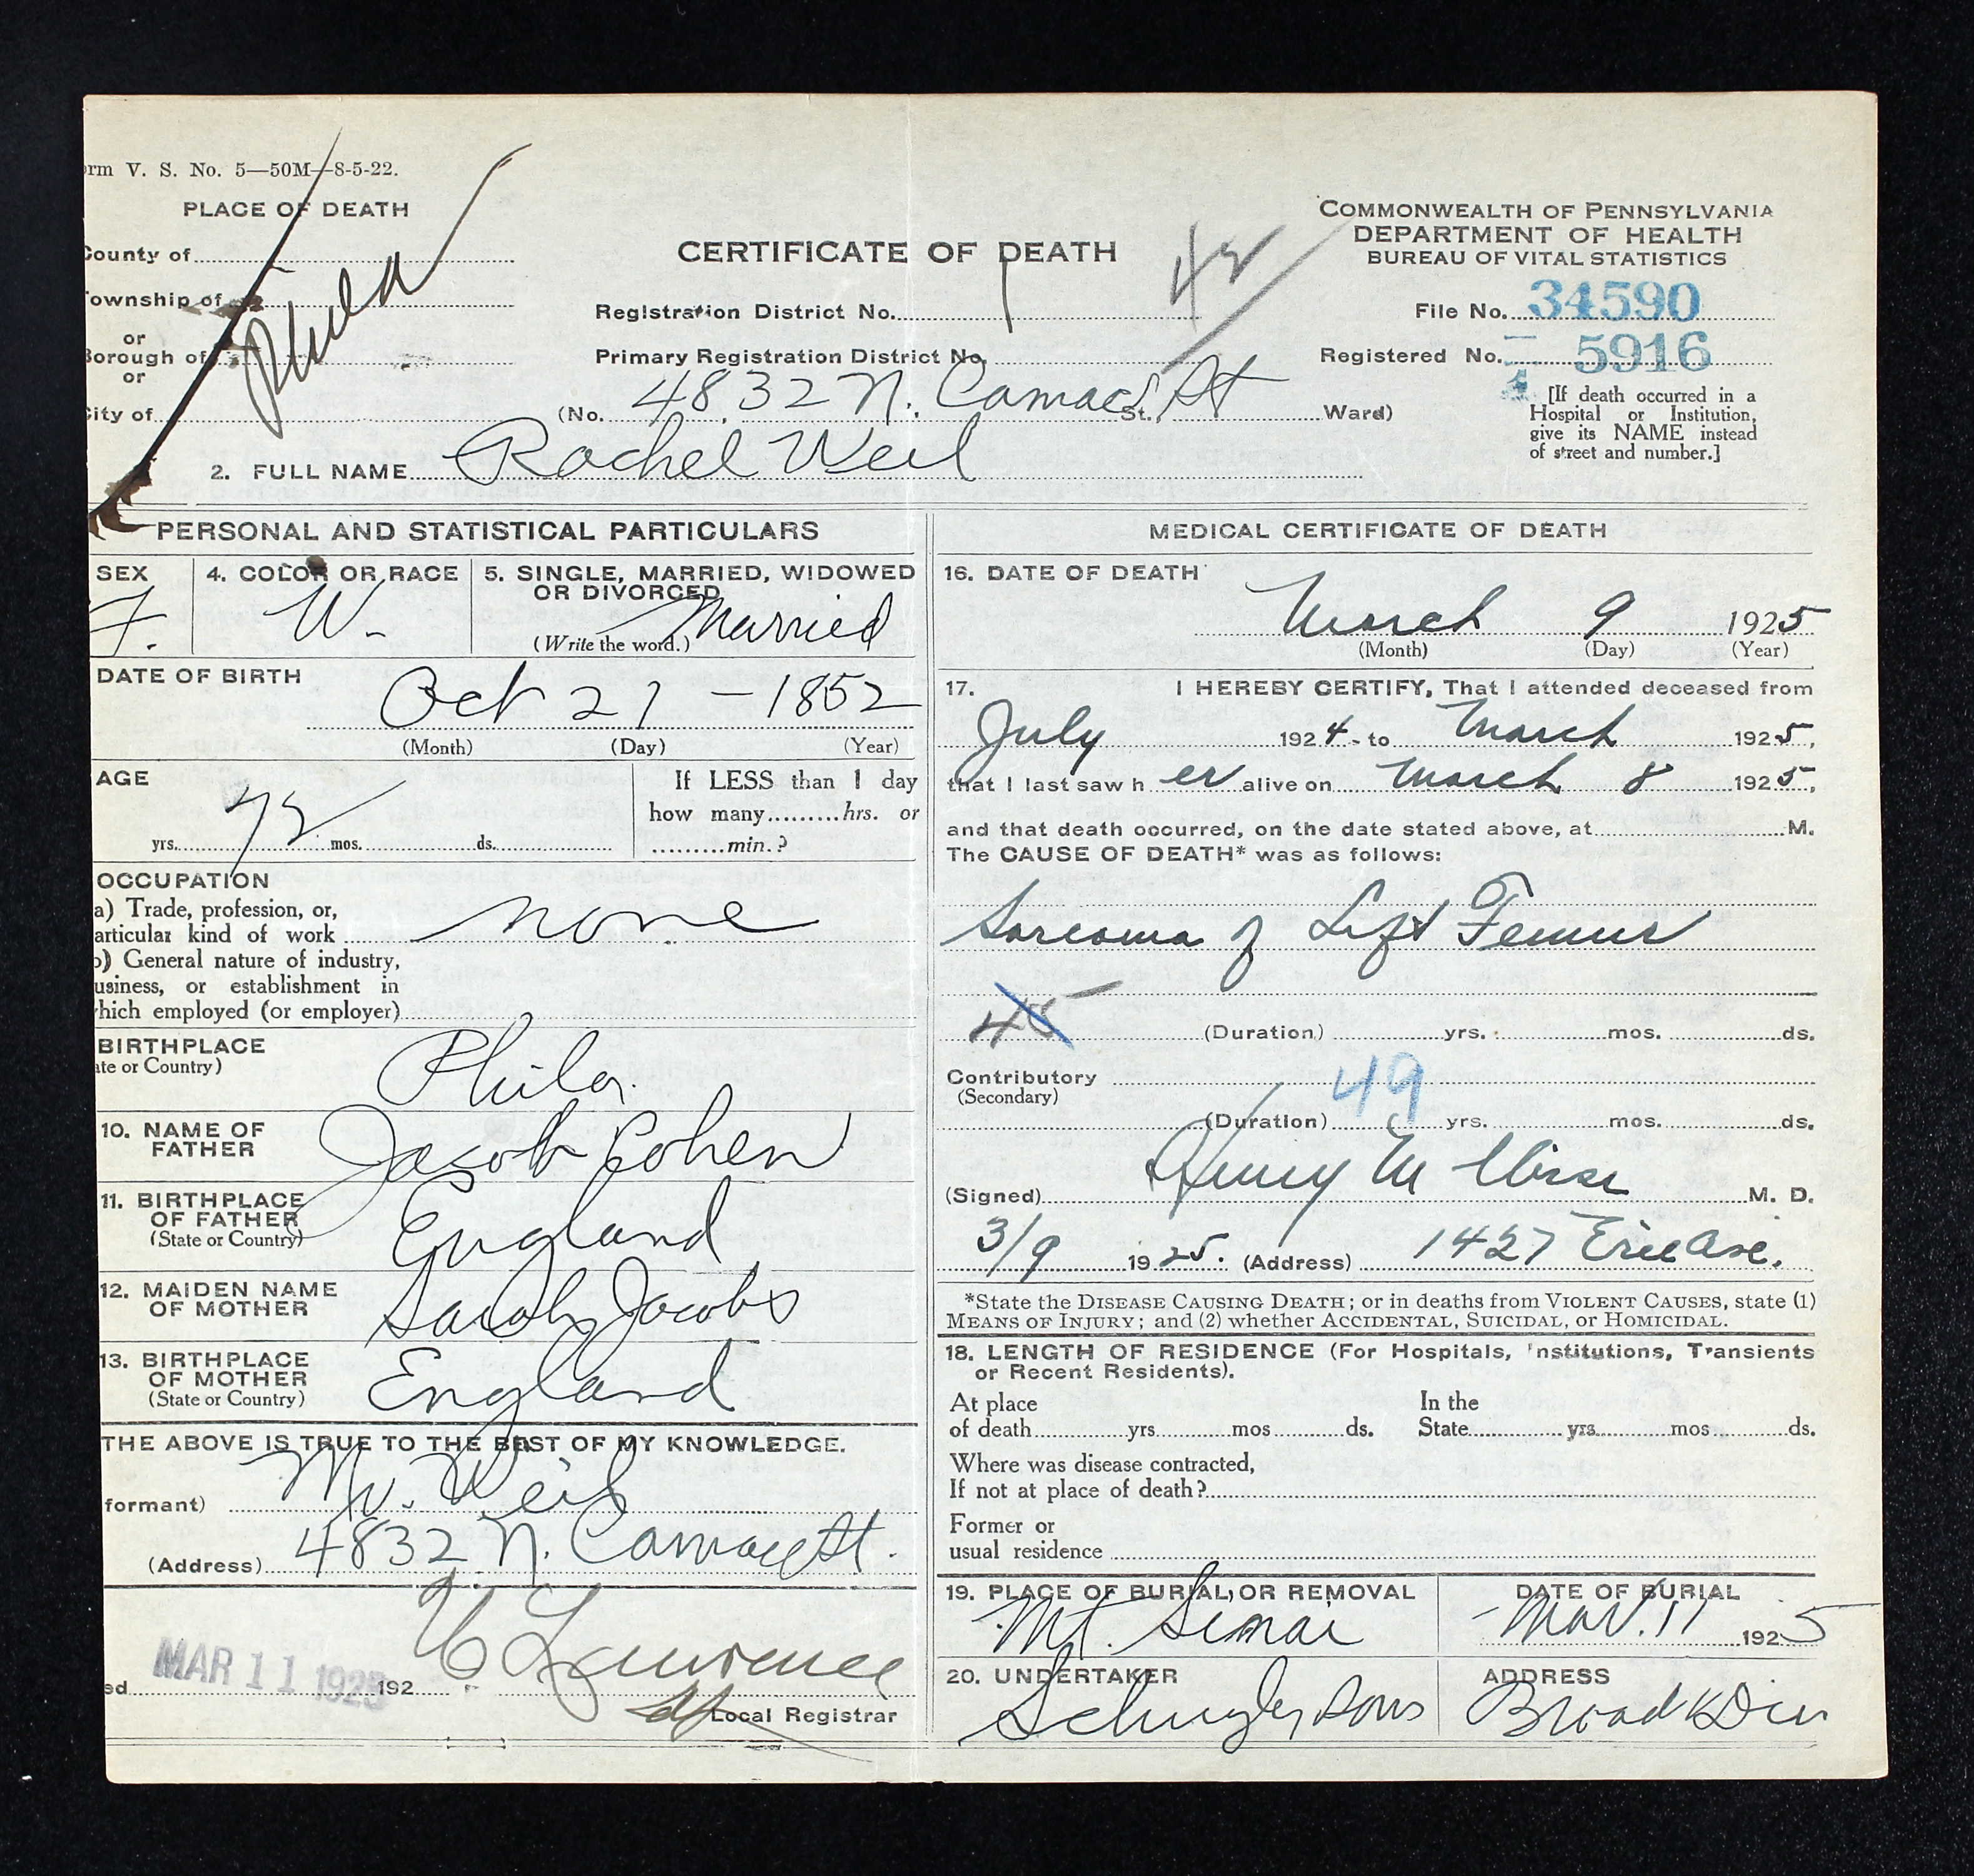 orm V. S. No. 5—50M—8-5-22.
PLACE OF DEATH
County of
Township of
or
Borough of
or
City of
Phila
CERTIFICATE OF DEATH
Registration District No. 1
Primary Registration District No.
(No. 4832 N. Camac St., St Ward)
COMMONWEALTH OF PENNSYLVANIA
DEPARTMENT OF HEALTH
BUREAU OF VITAL STATISTICS
File No. 34590
Registered No. 5916
[If death occurred in a
Hospital or Institution,
give its NAME instead
of street and number.]
2. FULL NAME Rachel Weil
PERSONAL AND STATISTICAL PARTICULARS
SEX
F.
4. COLOR OR RACE
W.
5. SINGLE, MARRIED, WIDOWED
OR DIVORCED
(Write the word.) Married
DATE OF BIRTH
Oct 21 - 1852
(Month) (Day) (Year)
AGE
72
yrs. mos. ds.
If LESS than 1 day
how many hrs. or
min.?
OCCUPATION
a) Trade, profession, or,
articular kind of work none
) General nature of industry,
usiness, or establishment in
hich employed (or employer)
BIRTHPLACE
ate or Country) Phila.
10. NAME OF
FATHER Jacob Cohen
11. BIRTHPLACE
OF FATHER
(State or Country) England
12. MAIDEN NAME
OF MOTHER Sarah Jacobs
13. BIRTHPLACE
OF MOTHER
(State or Country) England
THE ABOVE IS TRUE TO THE BEST OF MY KNOWLEDGE.
formant) Mr. Weil
(Address) 4832 N. Camac St.
ed MAR 11 1925 192
Lawrence
Local Registrar
MEDICAL CERTIFICATE OF DEATH
16. DATE OF DEATH
March 9 1925
(Month) (Day) (Year)
17. I HEREBY CERTIFY, That I attended deceased from
July 1924 to March 1925,
that I last saw her alive on March 8 1925,
and that death occurred, on the date stated above, at M.
The CAUSE OF DEATH* was as follows:
Sarcoma of Left Femur
45
(Duration) yrs. mos. ds.
Contributory
(Secondary)
49
(Duration) yrs. mos. ds.
(Signed) Henry M M. D.
3/9 1925. (Address) 1427 Erie Ave.
*State the DISEASE CAUSING DEATH; or in deaths from VIOLENT CAUSES, state (1)
MEANS OF INJURY; and (2) whether ACCIDENTAL, SUICIDAL, or HOMICIDAL.
18. LENGTH OF RESIDENCE (For Hospitals, Institutions, Transients
or Recent Residents).
At place
of death yrs mos ds.
In the
State yrs mos ds.
Where was disease contracted,
If not at place of death?
Former or
usual residence
19. PLACE OF BURIAL OR REMOVAL
Mt. Sinai
DATE OF BURIAL
Mar. 11 1925
20. UNDERTAKER
Sons
ADDRESS
Broad &